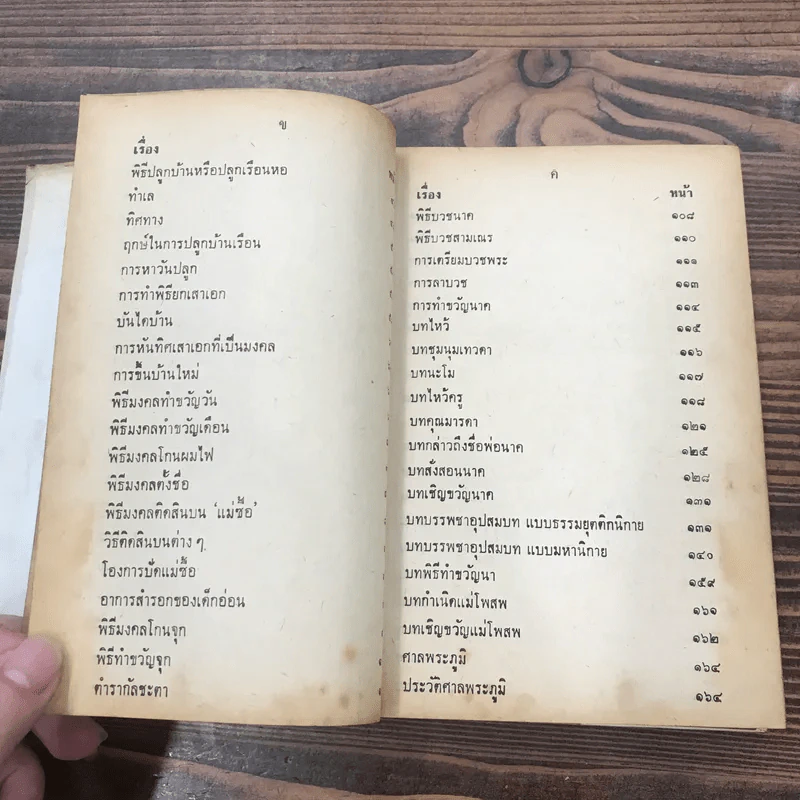 ข
เรื่อง
พิธีปลูกบ้านหรือปลูกเรือนหอ
ทำเล
ทิศทาง
ฤกษ์ในการปลูกบ้านเรือน
การหาวันปลูก
การทำพิธียกเสาเอก
บันไดบ้าน
การหันทิศเสาเอกที่เป็นมงคล
การขึ้นบ้านใหม่
พิธีมงคลทำขวัญวัน
พิธีมงคลทำขวัญเดือน
พิธีมงคลโกนผมไฟ
พิธีมงคลตั้งชื่อ
พิธีมงคลติดสินบน ‘แม่ซื้อ’
วิธีติดสินบนต่าง ๆ
โองการปัดแม่ซื้อ
อาการสำรอกของเด็กอ่อน
พิธีมงคลโกนจุก
พิธีทำขวัญจุก
ตำรากัลชะตา
ค
เรื่อง หน้า
พิธีบวชนาค ๑๐๘
พิธีบวชสามเณร ๑๑๐
การเตรียมบวชพระ ๑๑๑
การลาบวช ๑๑๓
การทำขวัญนาค ๑๑๔
บทไหว้ ๑๑๕
บทชุมนุมเทวดา ๑๑๖
บทนะโม ๑๑๗
บทไหว้ครู ๑๑๘
บทคุณมารดา ๑๒๑
บทกล่าวถึงชื่อพ่อนาค ๑๒๕
บทสั่งสอนนาค ๑๒๘
บทเชิญขวัญนาค ๑๓๑
บทบรรพชาอุปสมบท แบบธรรมยุตติกนิกาย ๑๓๑
บทบรรพชาอุปสมบท แบบมหานิกาย ๑๔๐
บทพิธีทำขวัญนา ๑๕๙
บทกำเนิดแม่โพสพ ๑๖๑
บทเชิญขวัญแม่โพสพ ๑๖๒
ศาลพระภูมิ ๑๖๔
ประวัติศาลพระภูมิ ๑๖๔